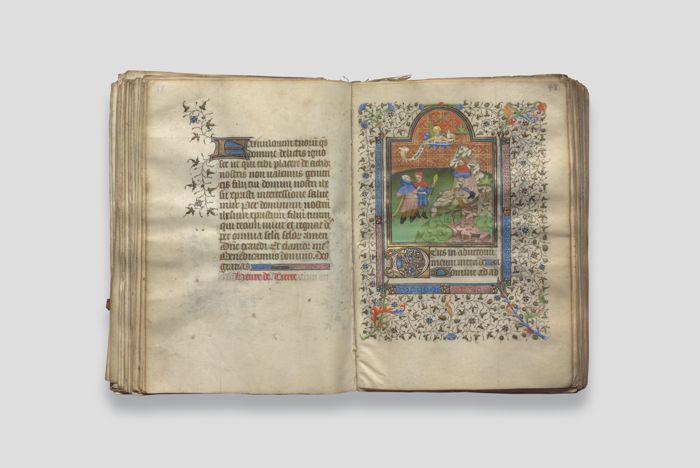 Famulorum tuorum qs
domine delictis igno
sce ut qui tibi placere de actib
nostris non valemus geneti
cis filii tui domini nostri ih
su xpristi intercessione salue
mur Per dominum nostru
ihesum xpristum filiu tuum
qui tecum viuit et regnat ds
per omnia secla seclor amen
Dne exaudi Et clamor me
Benedicamus domino Deo
gratias
Heure de Tierce
Eus in adiutoriu
meum intende
Domine ad ad